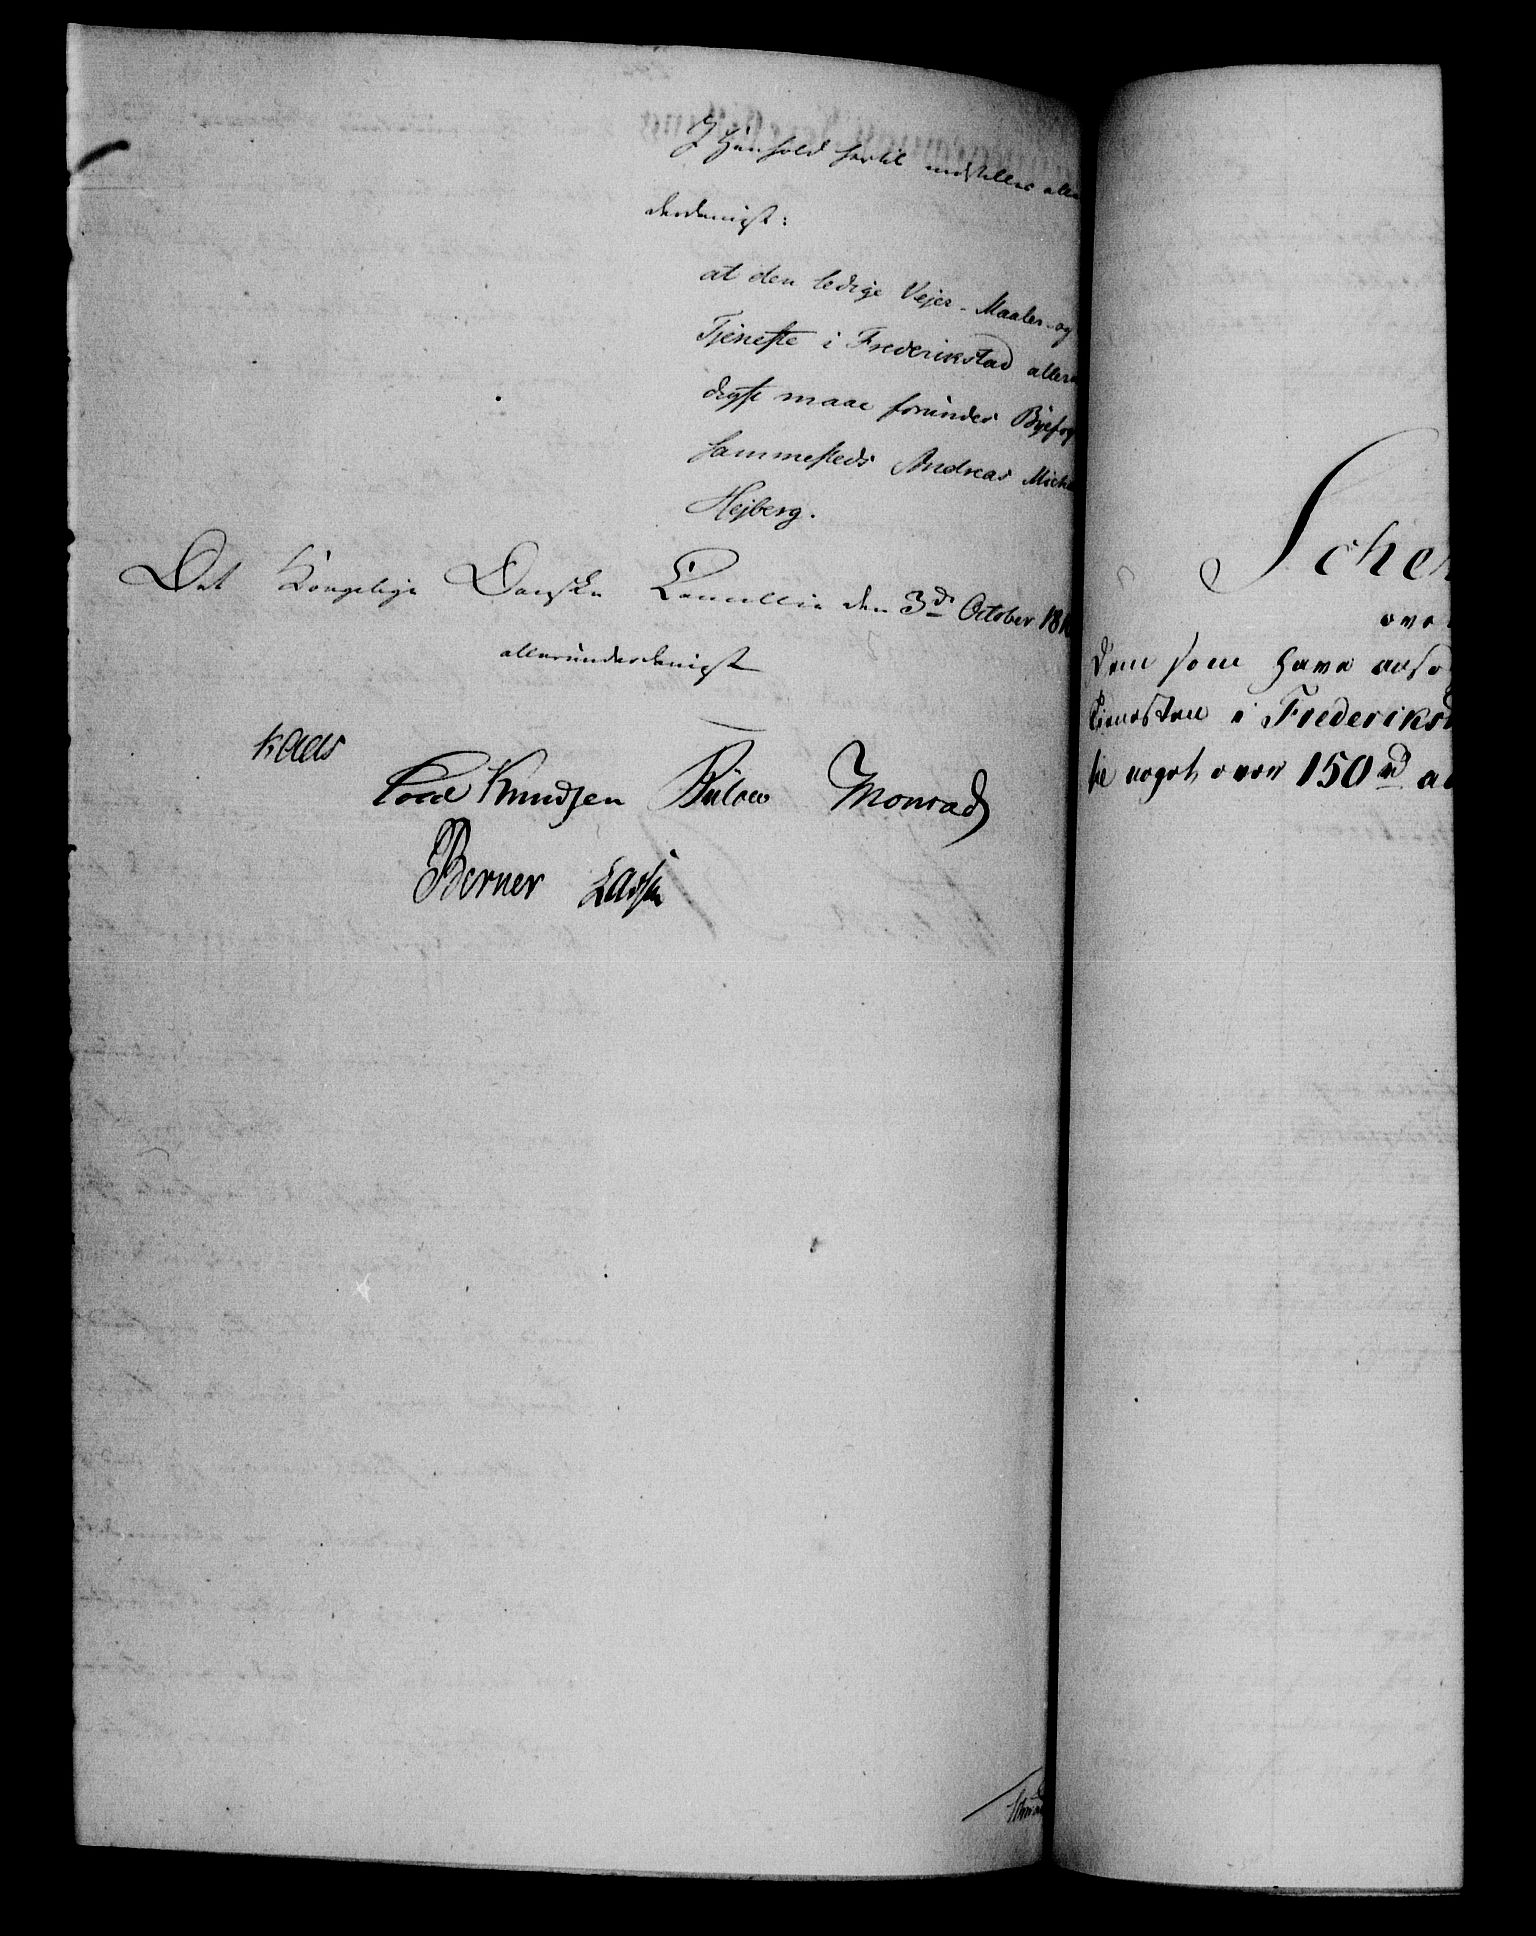 I Henhold hertil indstilles aller
underdanigst:
at den ledige Vejer- Maaler- og
Tjeneste i Frederikstad allern
digst maae forundes Byefog
sammesteds Andreas Micha
Hejberg.
Det Kongelige Danske Cancellie den 3die October 181
allerunderdanigst
Kaas
Cold Knudsen Bülow Monrad
Berner Lassen
Schem
over
Dem som have ansø
Tienesten i Frederikst
te noget over 150 rd a